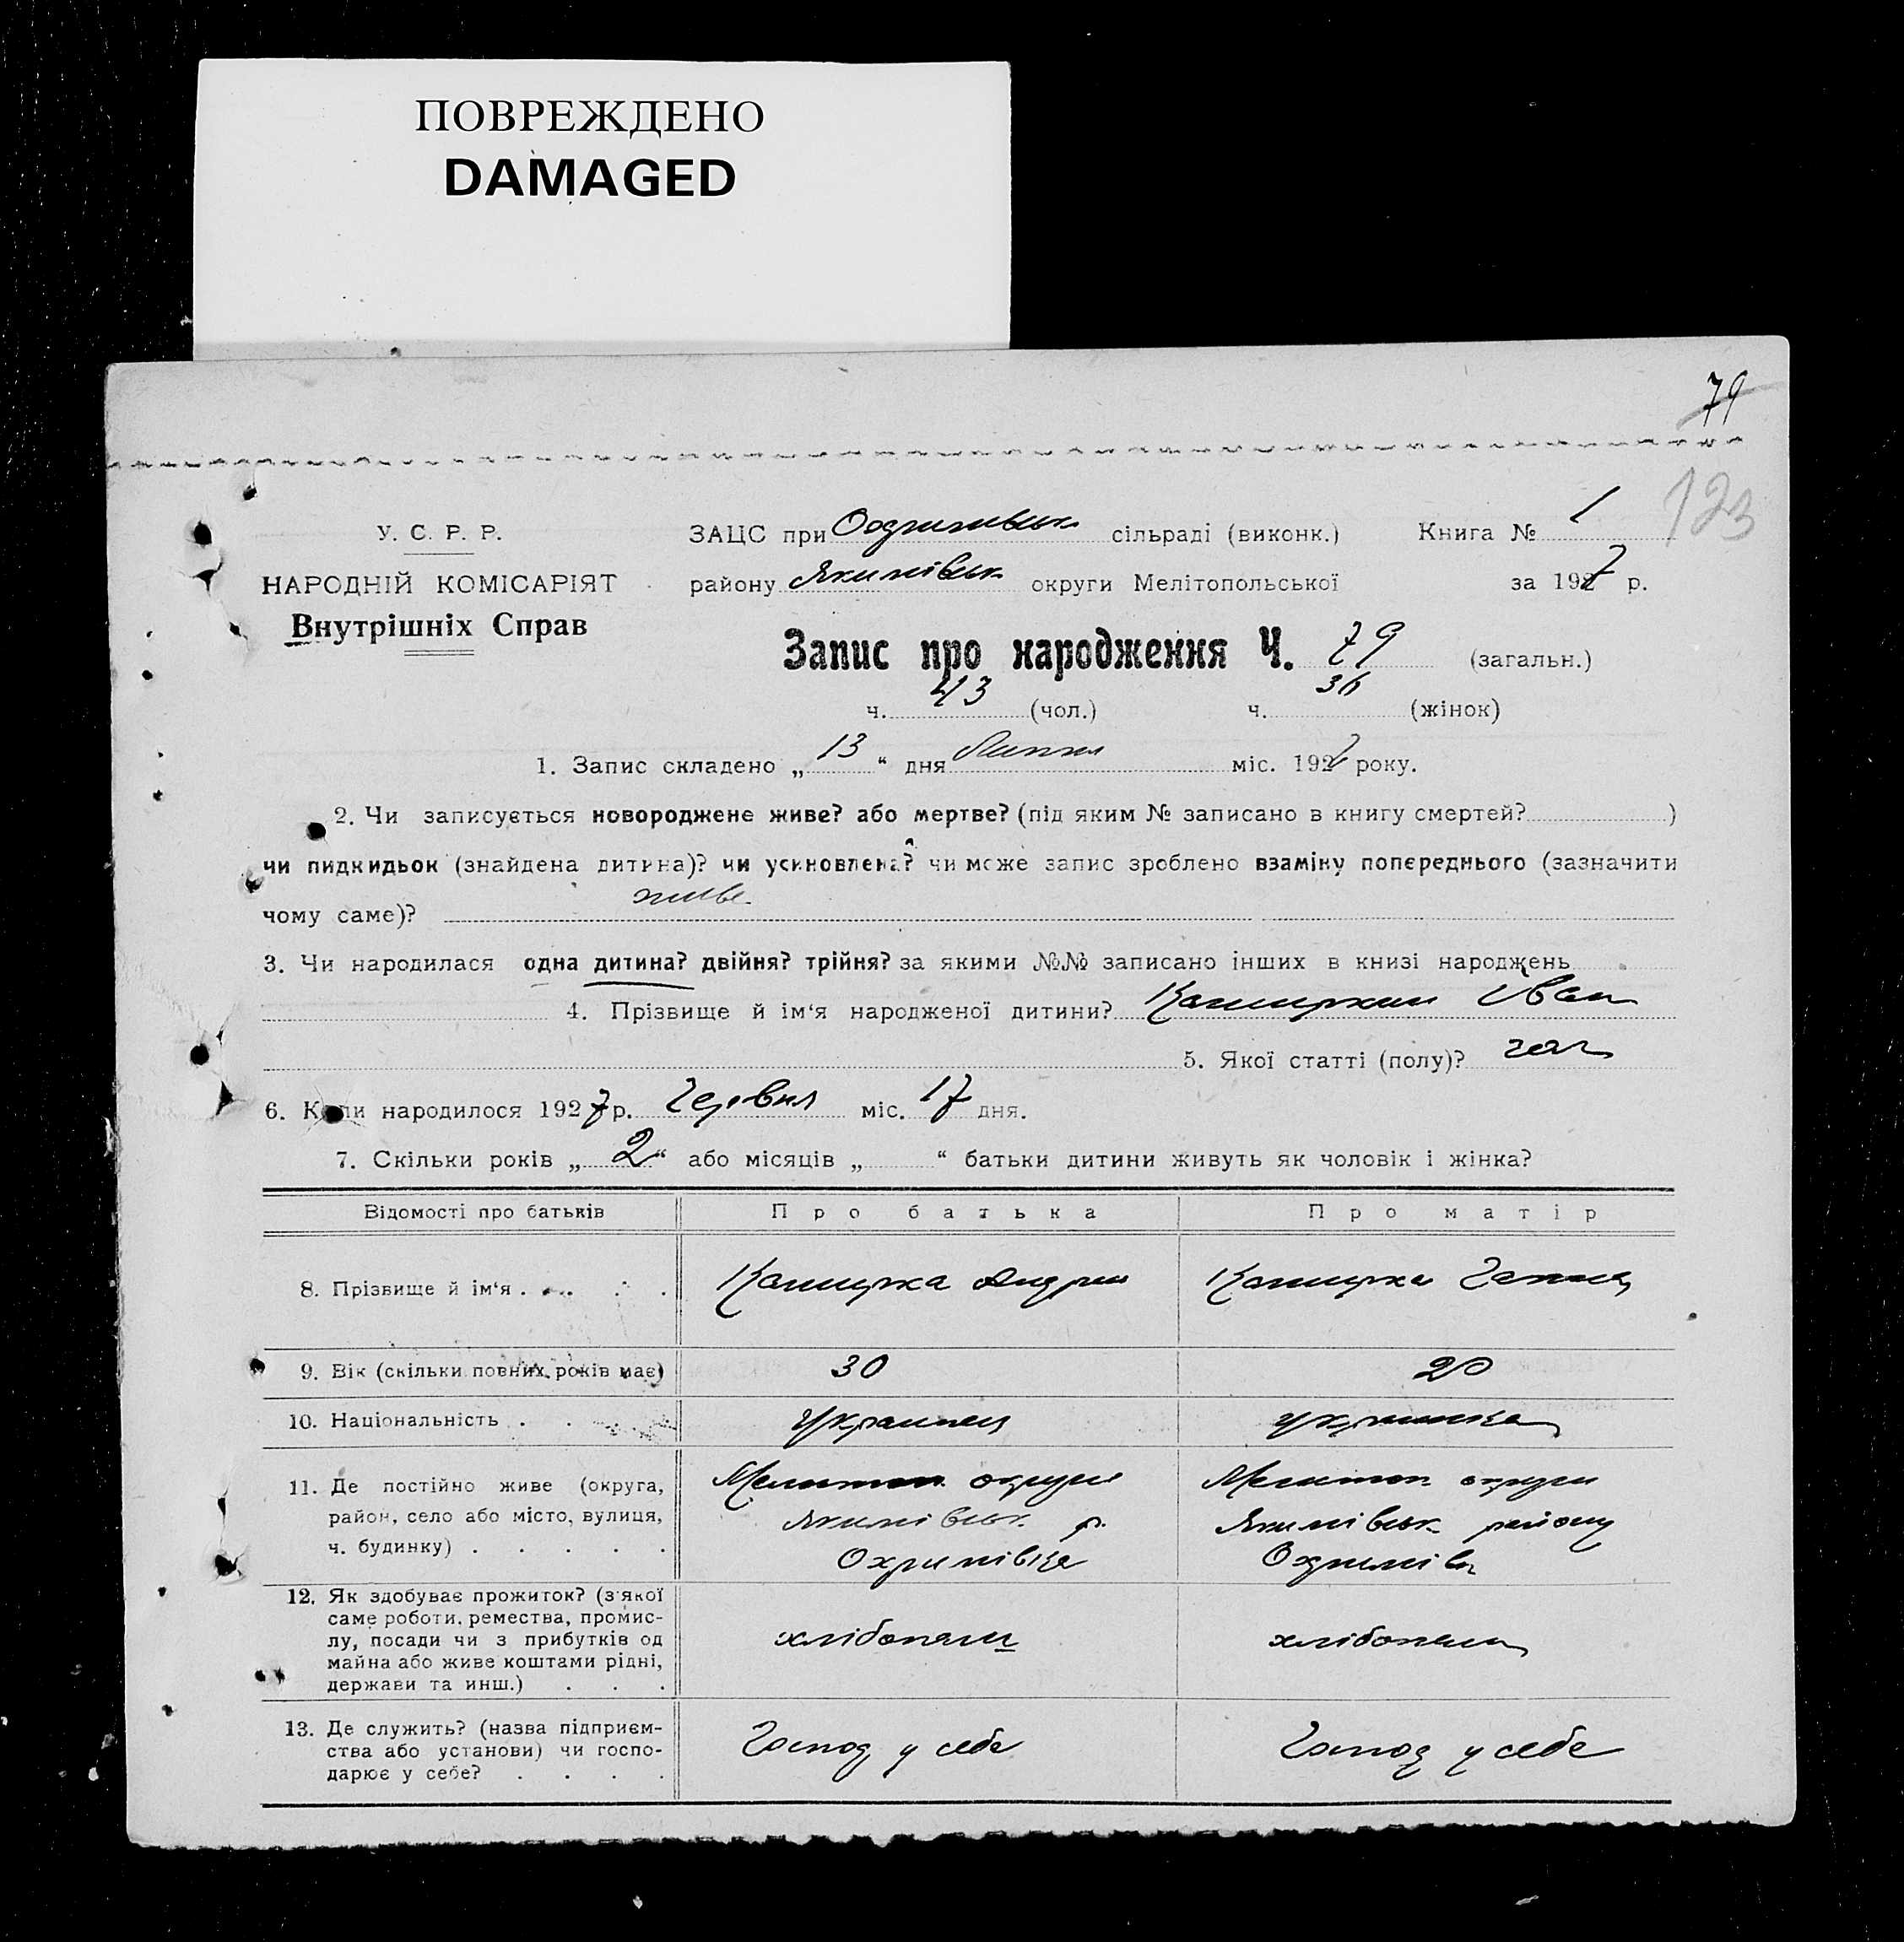 ПОВРЕЖДЕНО
DAMAGED
79
123
У. С. Р. Р.
НАРОДНІЙ КОМІСАРІЯТ
Внутрішніх Справ
ЗАЦС при сільраді (виконк.) Книга № 1
району Якимівськ округи Мелітопольської за 1927 р.
Запис про народження Ч. 79 (загальн.)
ч. 43 (чол.) ч. 36 (жінок)
1. Запис складено „ 13 “ дня Липня міс. 1927 року.
2. Чи записується новороджене живе? або мертве? (під яким № записано в книгу смертей? )
чи пидкидьок (знайдена дитина)? чи усиновлена? чи може запис зроблено взаміну попереднього (зазначити
чому саме)? живе
3. Чи народилася одна дитина? двійня? трійня? за якими №№ записано інших в книзі народжень
4. Прізвище й ім‘я народженої дитини? Іван
5. Якої статті (полу)? чол
6. Коли народилося 1927 р. Червня міс. 17 дня.
7. Скільки років „ 2 “ або місяців „ “ батьки дитини живуть як чоловік і жінка?
Відомості про батьків Про батька Про матір
8. Прізвище й ім‘я . . . . . Каширка Андрій Каширка Ганна
9. Вік (скільки повних років має) 30 20
10. Національність . . . Українец українка
11. Де постійно живе (округа,
район, село або місто, вулиця,
ч. будинку) . . . . .
Мелитоп. округи
Якимівськ. р.
Охримівка
Мелитоп. округи
Якимівськ. району
Охримівк
12. Як здобуває прожиток? (з якої
саме роботи, ремества, промис-
лу, посади чи з прибутків од
майна або живе коштами рідні,
держави та инш.) . . .
хлібопаш
хлібопаш
13. Де служить? (назва підприєм-
ства або установи) чи госпо-
дарює у себе? . . . .
Господ у себе
Господ у себе